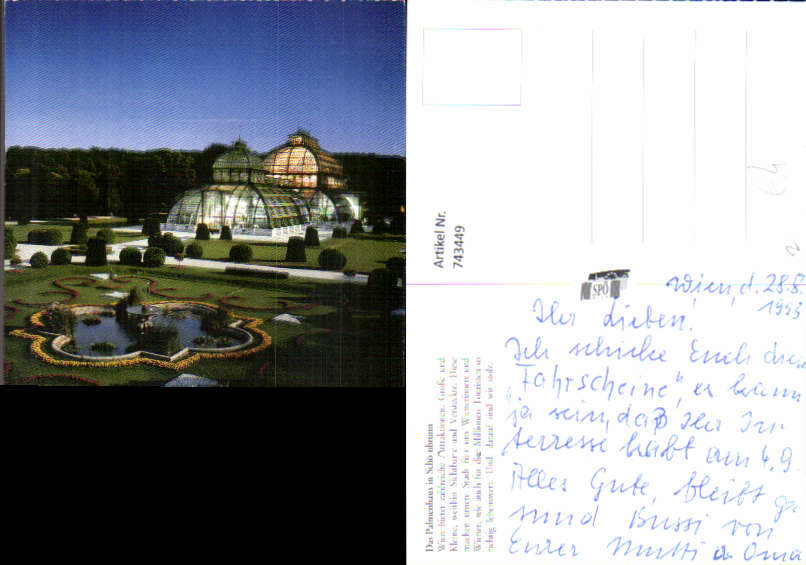 Artikel Nr.
743449
SPÖ
Wien, d. 28.8.
1993
Ihr Lieben.
Ich schicke Euch diese
„Fahrscheine", es kann
ja sein, daß Ihr In-
terresse habt am 4.9.
Alles Gute, bleibt ge
sund Bussi von
Eurer Mutti u Oma
Das Palmenhaus in Schönbrunn
Wien bietet zahlreiche Attraktionen. Große und
Kleine, weithin Sichtbare und Versteckte. Diese
machen unsere Stadt für uns Wienerinnen und
Wiener, wie auch für die Millionen Touristen so
richtig lebenswert. Und darauf sind wir stolz.